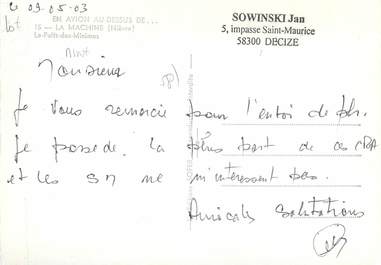 09.05.03
EN AVION AU-DESSUS DE...
15 — LA MACHINE (Nièvre)
Le Puits des Minimes
SOWINSKI Jan
5, impasse Saint-Maurice
58300 DECIZE
Monsieur
Je vous remercie pour l'envoi de ph.
Je possede. la plus part de ces CPA
et les sm ne m'interessent pas.
Amicales Salutations